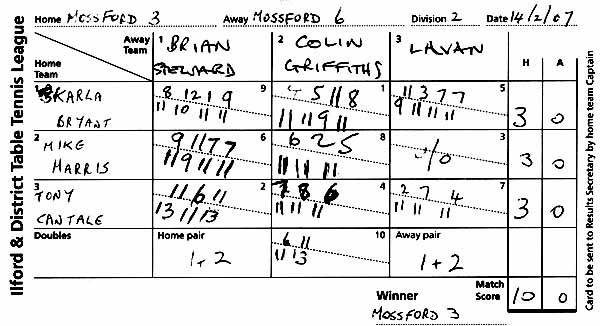 Ilford & District Table Tennis League
Home MOSSFORD 3 Away MOSSFORD 6 Division 2 Date 14/2/07
Away Team 1 BRIAN STEWARD 2 COLIN GRIFFITHS 3 LAVAN H A
Home Team
1 KARLA BRYANT 9 1 5 3 0
8 12 1 9
11 10 11 11
5 11 8
11 11 9 11
11 3 7 7
9 11 11 11
2 MIKE HARRIS 6 8 3 3 0
9 11 7 7
11 9 11 11
6 2 5
11 11 11
W/O
3 TONY CANTALE 2 4 7 3 0
11 6 11
13 11 13
7 8 6
11 11 11
2 7 4
11 11 11
Doubles Home pair 10 Away pair
1 + 2
6 11
11 13
1 + 2
Winner Match Score 10 0
MOSSFORD 3
Card to be sent to Results Secretary by home team Captain